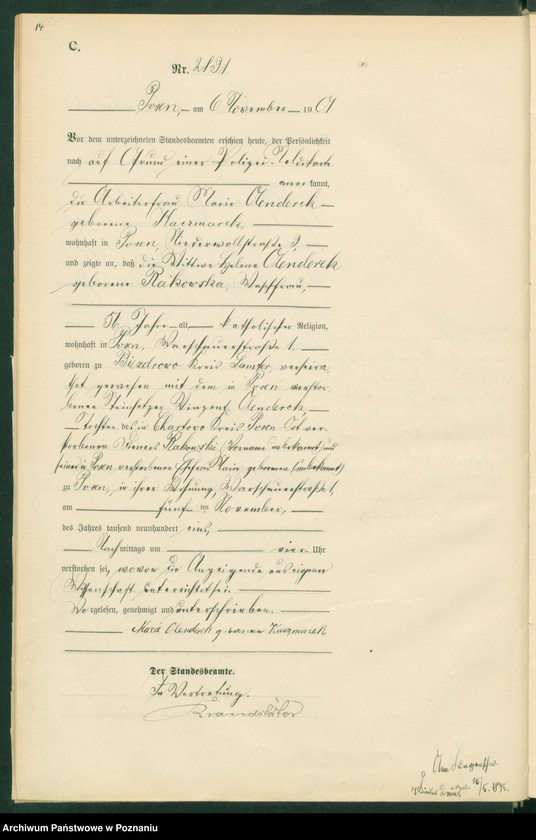 14
C.
Nr. 2131.
Posen, am 6 November 1901
Vor dem unterzeichneten Standesbeamten erschien heute, der Persönlichkeit
nach auf Grund einer Polizei-Meldekarte
anerkannt,
die Arbeiterfrau Marie Olenderek
geborene Kaczmarek,
wohnhaft in Posen, Niederwallstraße 3,
und zeigte an, daß die Wittwe Helene Olenderek
geborene Rakowska, Waschfrau,
56 Jahre alt, katholischer Religion,
wohnhaft in Posen, Warschauerstraße 1
geboren zu Biezdrowo Kreis Samter, verheira
thet gewesen mit dem in Posen verstor
benen Steinsetzer Vinzent Olenderek,
Tochter des in Chartowo Kreis Posen Ost ver-
storbenen Rakowski (Vorname unbekannt) und
seiner in Posen verstorbenen Ehefrau Marie geborenen (unbekannt)
zu Posen, in ihrer Wohnung, Warschauerstraße 1,
am fünf ten November,
des Jahres tausend neunhundert eins,
Nachmittags um vier Uhr
verstorben sei, wovon die Anzeigende aus eigener
Wissenschaft unterrichtet sei.
Vorgelesen, genehmigt und unterschrieben.
Marie Olenderek geborene Kaczmarek
Der Standesbeamte.
In Vertretung.
Brandstäter
16/5. 1895.
Archiwum Państwowe w Poznaniu